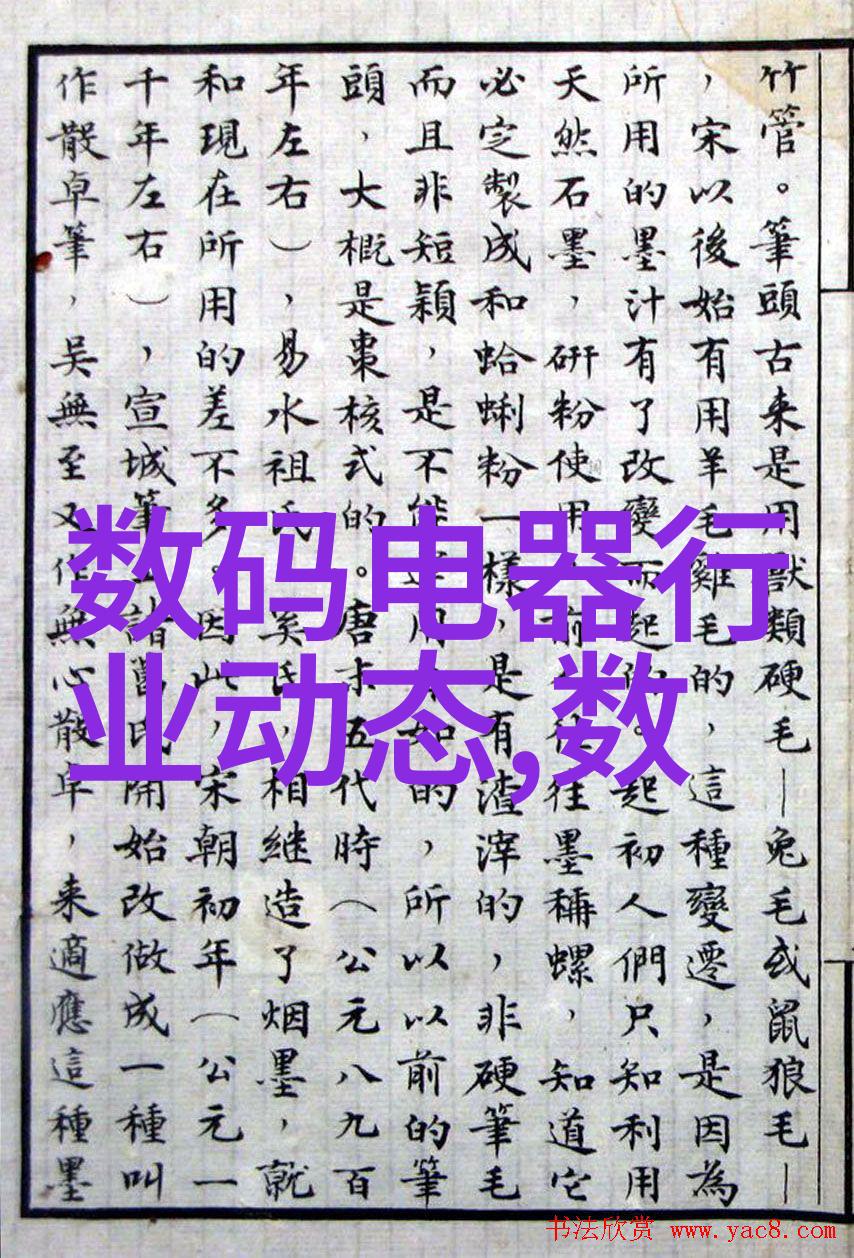 竹管。筆頭古来是用獸類硬毛—兔毛或鼠狼毛—
，宋以後始有用羊毛雞毛的，這種變遷，是因為
所用的墨汁有了改變而起的。起初人們只知利用
天然石墨，研粉使用，前往往墨稱螺，知道它
必定製成和蛤蜊粉一樣，是有渣滓的，非硬筆毛
而且非短穎，是不能用如的，所以以前的筆
頭，大概是棗核式的。唐末五代時（公元八九百
年左右），易水祖氏奚氏，相继造了烟墨，就
和現在所用的差不多。因此，宋朝初年（公元一
千年左右），宣城筆工諸葛氏開始改做成一種叫
作散卓筆，吳無至又作無心散卓，来適應這種墨
数码电器行
业动态,数
书法欣赏 www.yac8.com